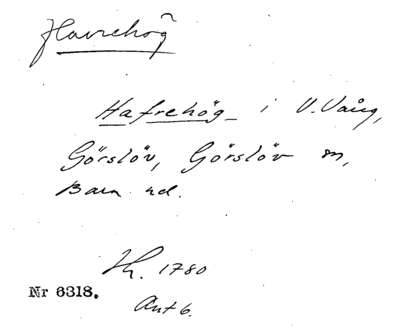 Havrehög
Hafrehög i V. Vång,
Görslöv, Görslöv sn,
Bara hd.
Sk. 1780
Nr 6318.
Akt 6.